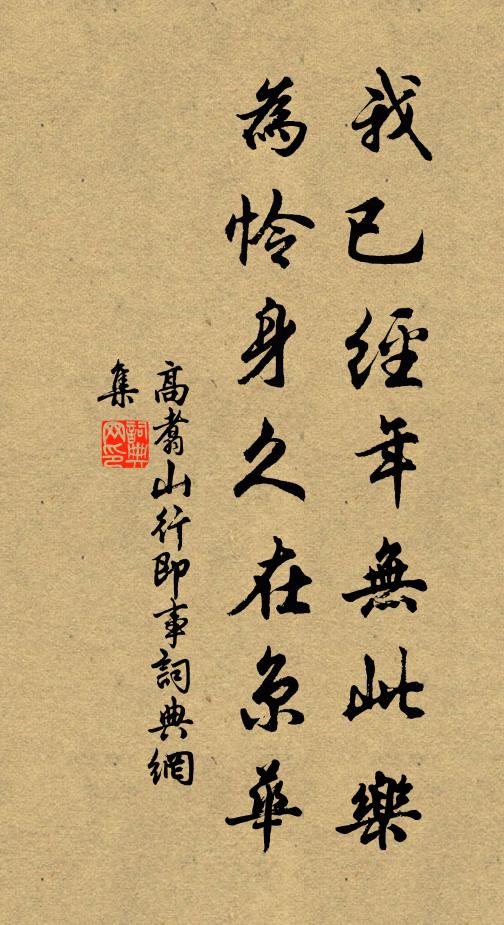 我已經年無此樂
為怜身久在京華
高翥山行即事詞典網
集
詞典
网印